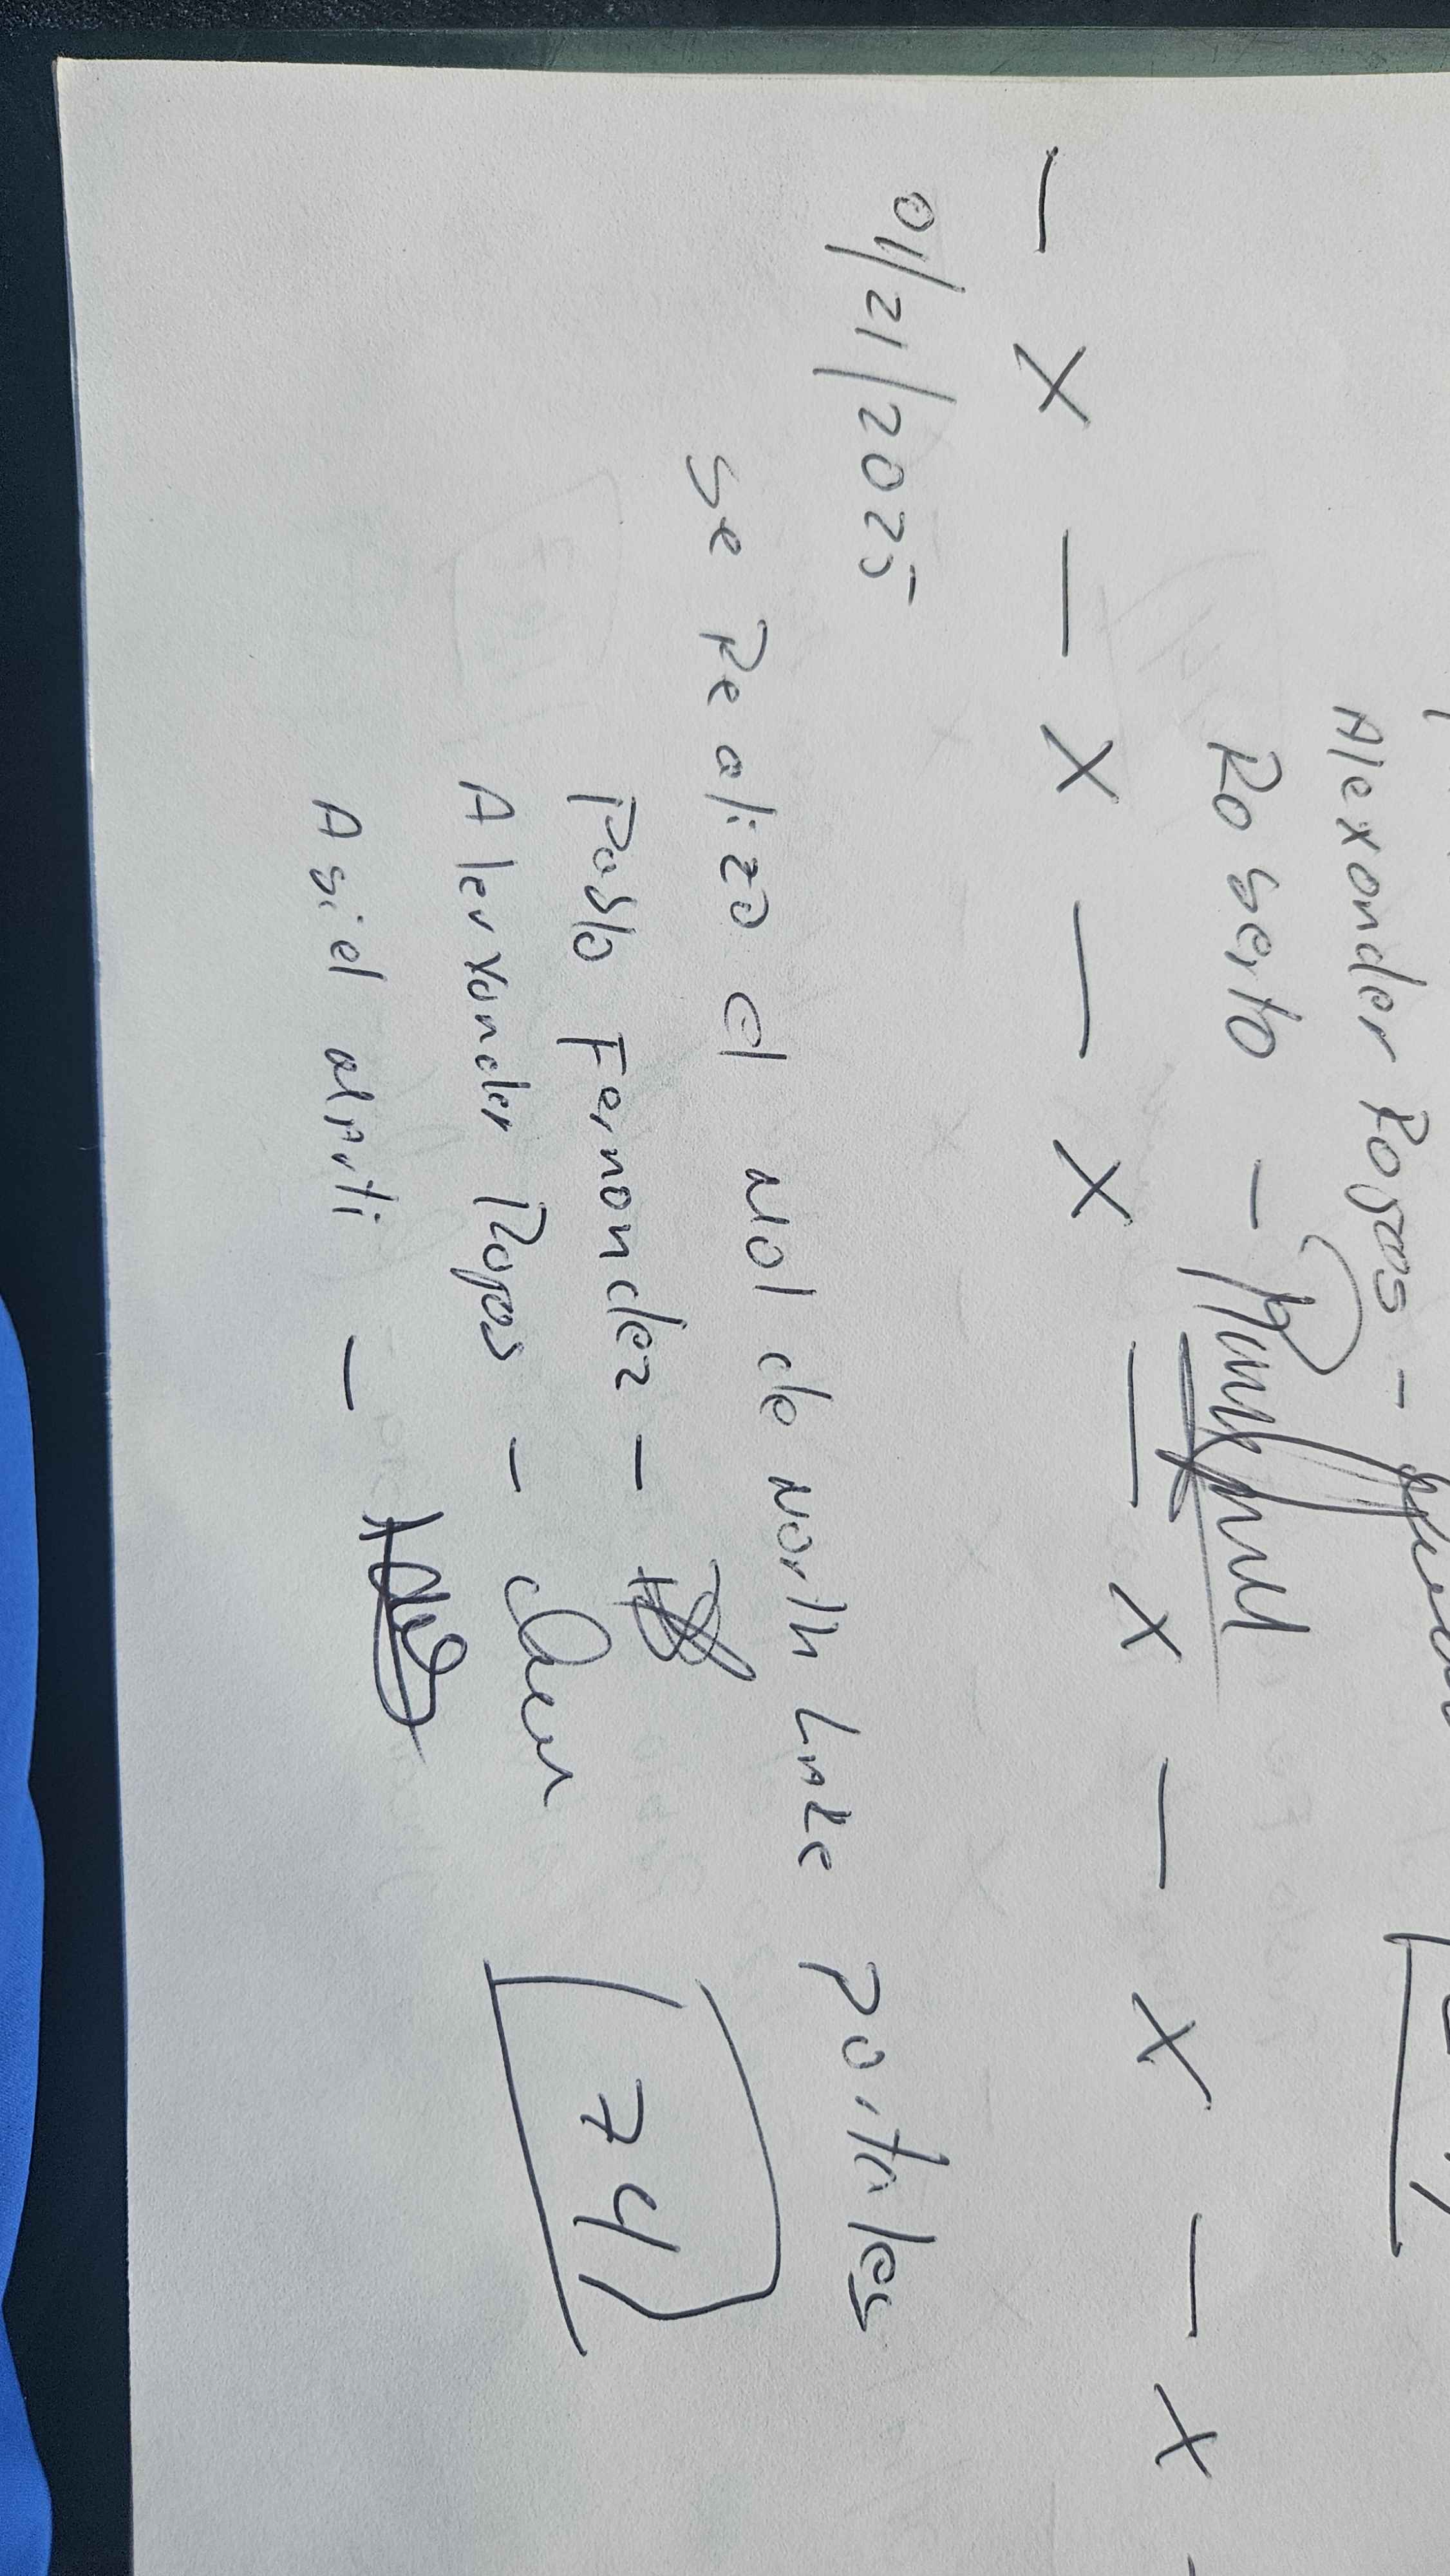 Alexander Rojas -
Roberto -
— X — X — X — X — X — X
01/21/2025
Se Realizo el Mol de North Lake Portales
Pablo Fernandez -
Alexander Rojas -
74
Asiel -